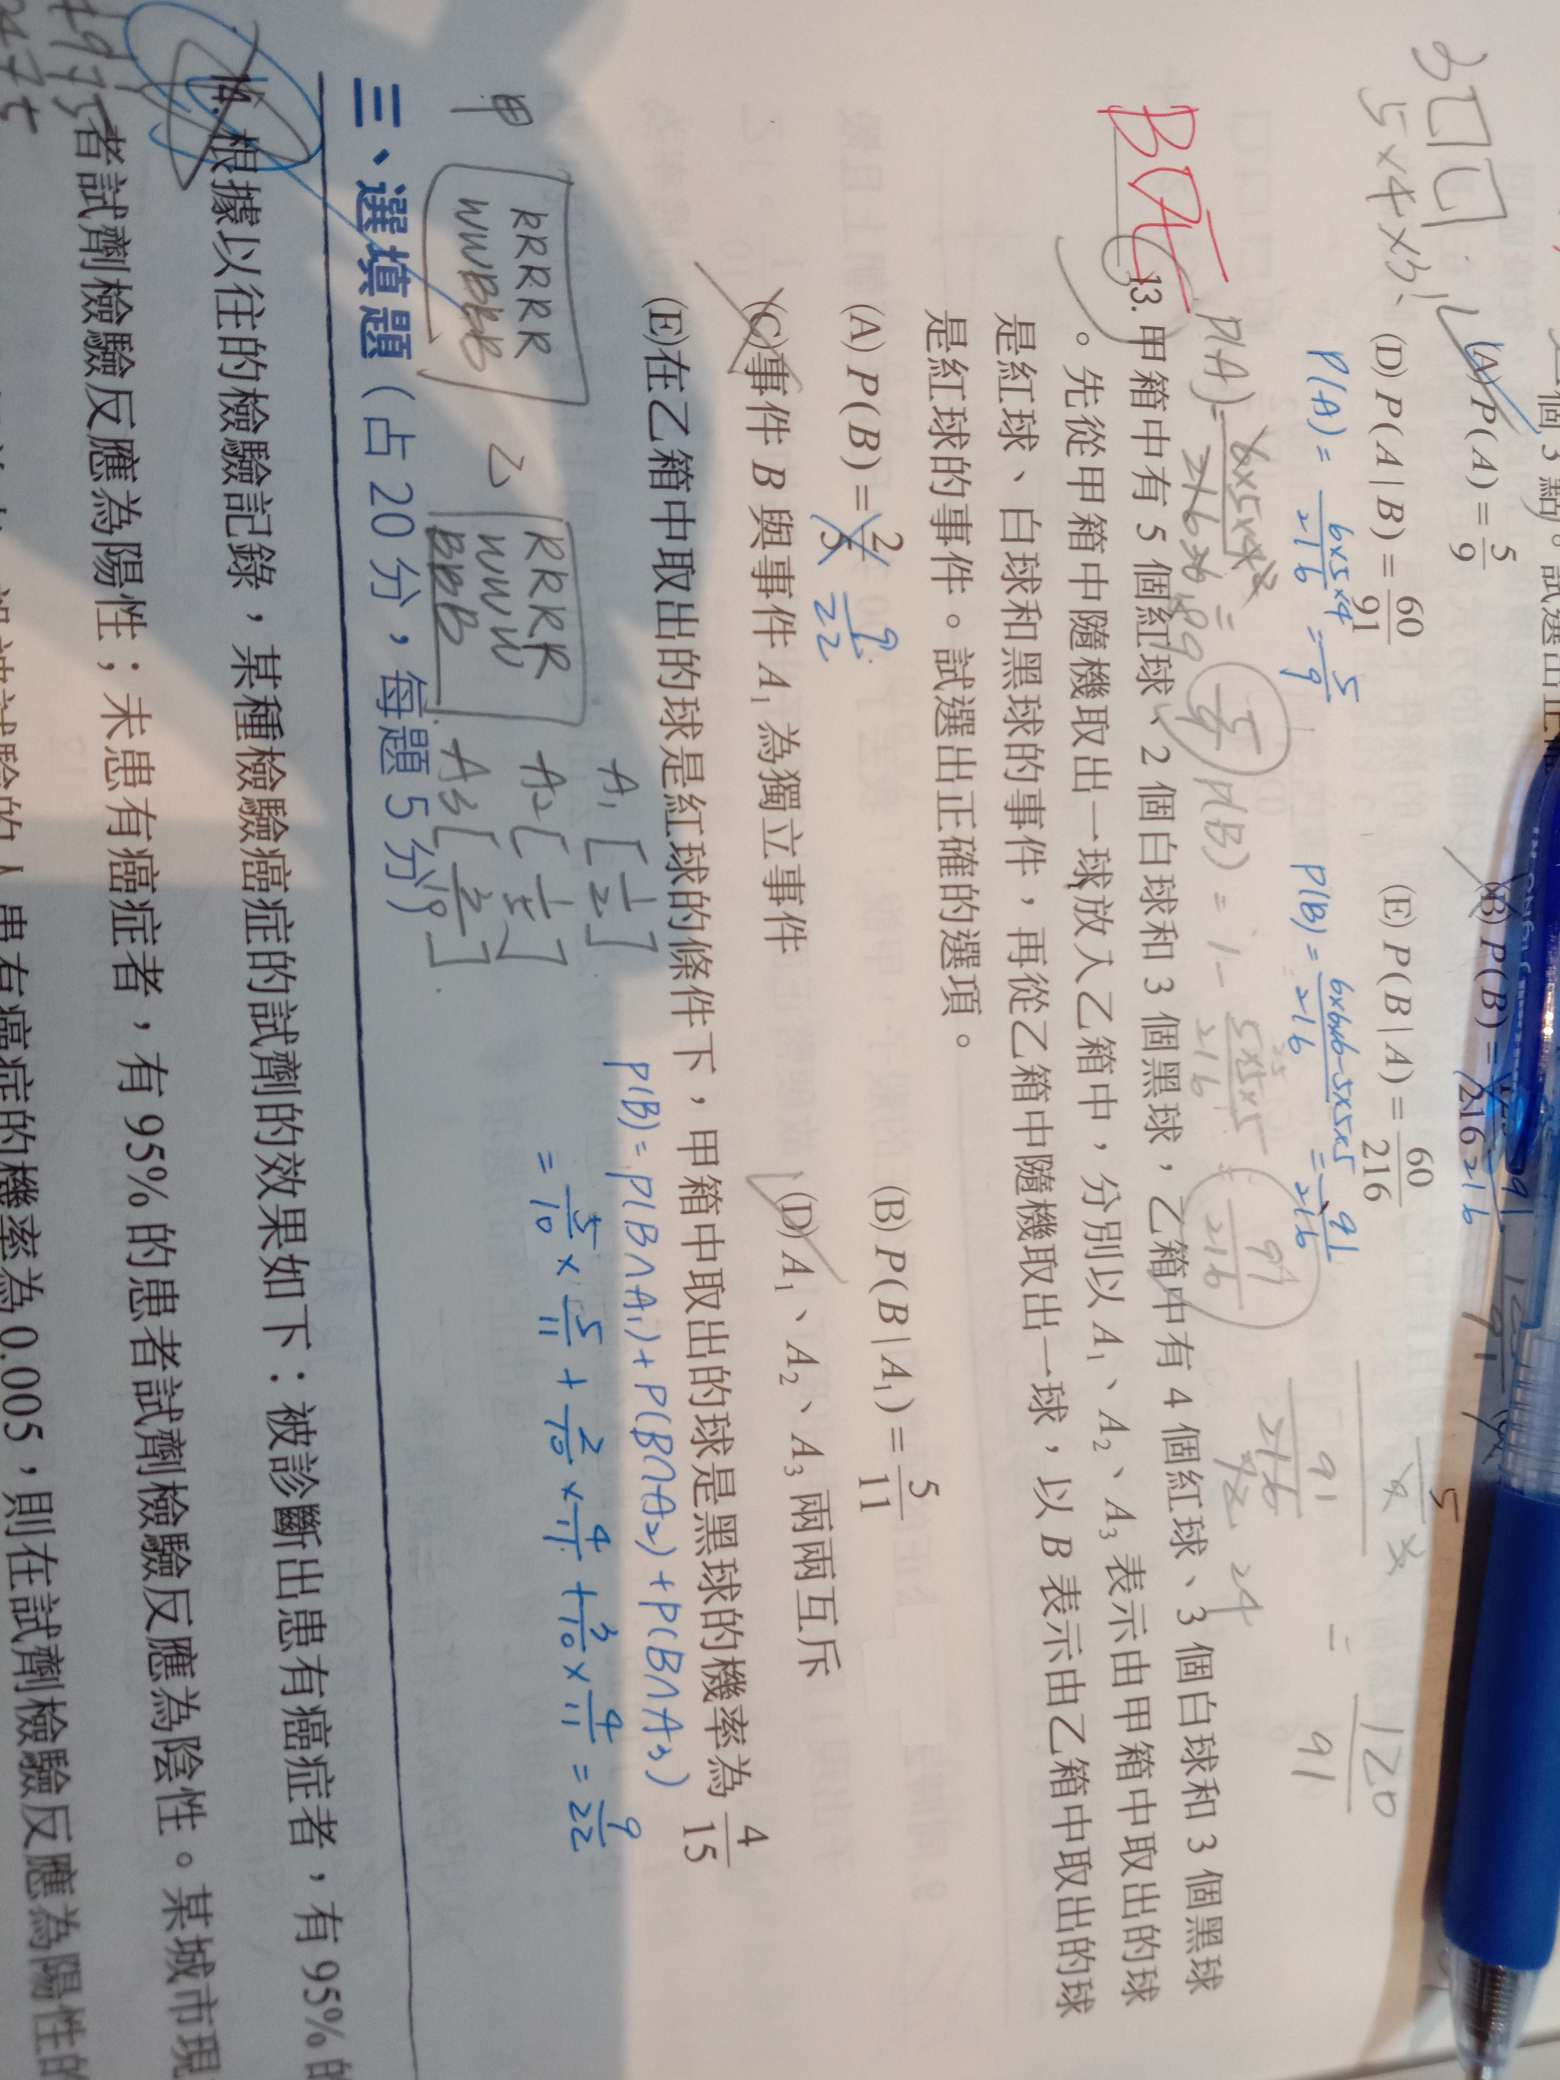 一個 3 點。試選出正確
(A) P(A) = 5/9
(B) P(B) = 216 91/216
(D) P(A|B) = 60/91
(E) P(B|A) = 60/216
5×4×3
P(A) = 6×5×4/216 = 5/9
P(B) = 6×6×6-5×5×5/216 = 91/216
= 120/91
P(B) = 1 - 5×5×5/216 = 91/216
13. 甲箱中有 5 個紅球、2 個白球和 3 個黑球，乙箱中有 4 個紅球、3 個白球和 3 個黑球
。先從甲箱中隨機取出一球放入乙箱中，分別以 A₁、A₂、A₃ 表示由甲箱中取出的球
是紅球、白球和黑球的事件，再從乙箱中隨機取出一球，以 B 表示由乙箱中取出的球
是紅球的事件。試選出正確的選項。
(A) P(B) = 2/5 9/22
(B) P(B|A₁) = 5/11
(C) 事件 B 與事件 A₁ 為獨立事件
(D) A₁、A₂、A₃ 兩兩互斥
(E) 在乙箱中取出的球是紅球的條件下，甲箱中取出的球是黑球的機率為 4/15
P(B) = P(B∩A₁) + P(B∩A₂) + P(B∩A₃)
= 5/10 × 5/11 + 2/10 × 4/11 + 3/10 × 4/11 = 9/22
甲
RRRRR
WWBBB
乙
RRRR
WWW
BBB
A₁ [1/2]
A₂ [1/5]
三、選填題（占 20 分，每題 5 分）
14. 根據以往的檢驗記錄，某種檢驗癌症的試劑的效果如下：被診斷出患有癌症者，有 95% 的
者試劑檢驗反應為陽性；未患有癌症者，有 95% 的患者試劑檢驗反應為陰性。某城市現
被試驗的人患有癌症的機率為 0.005，則在試劑檢驗反應為陽性的